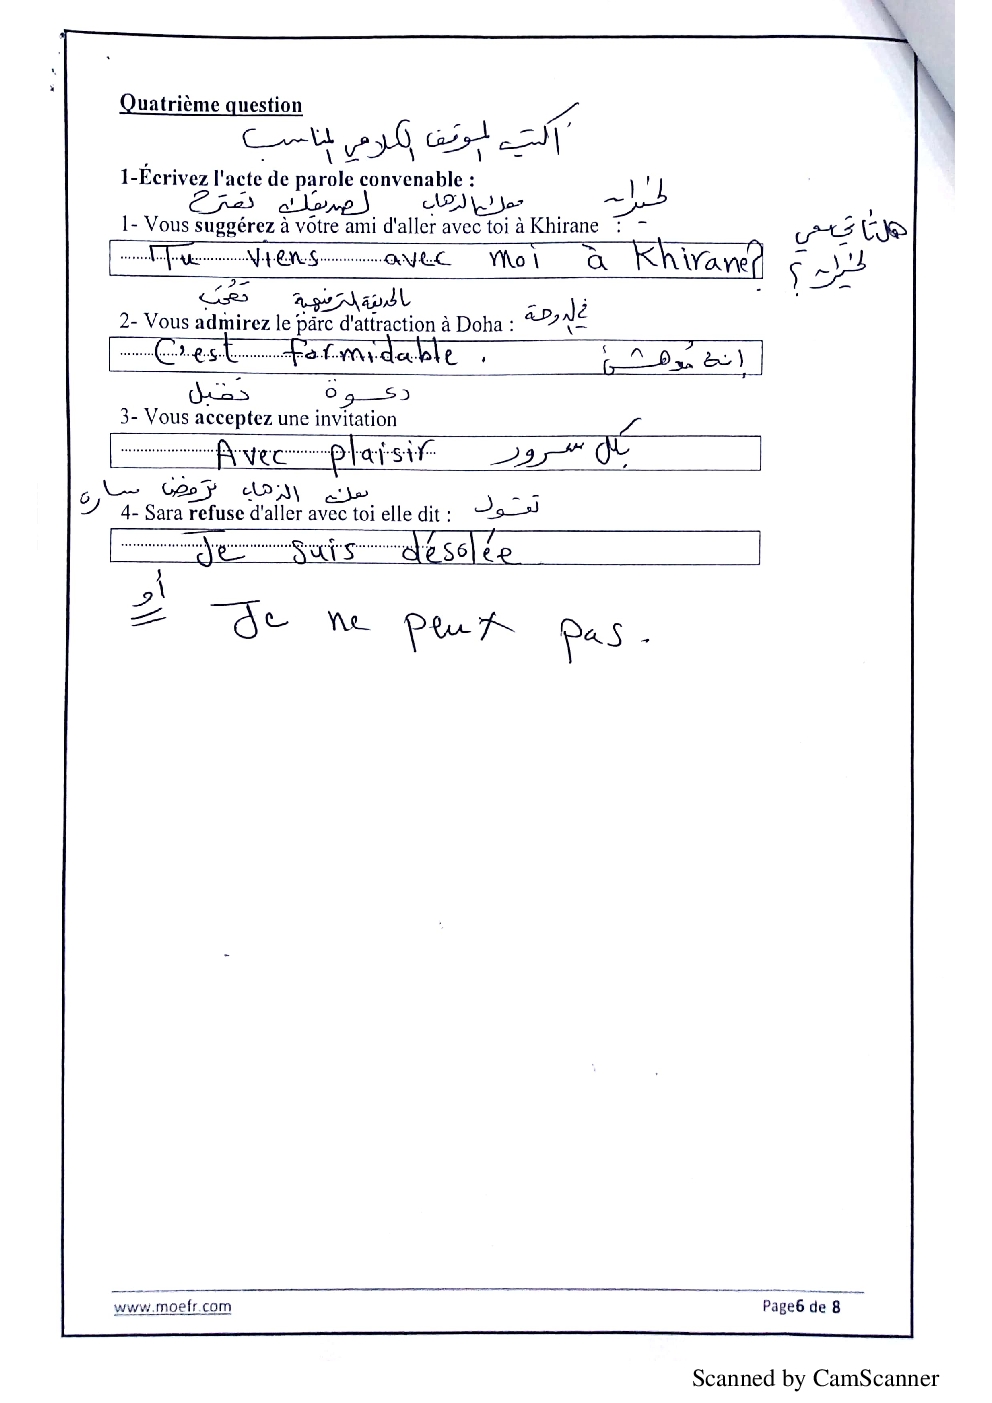 Quatrième question
اكتب الموقف الكلامي المناسب
1-Écrivez l'acte de parole convenable :
تقترح لصديقك الذهاب معك لخيران
1- Vous suggérez à votre ami d'aller avec toi à Khirane :
هل تأتي معي
Tu viens avec moi à Khirane?
لخيران ؟
تُعجب بالحديقة الترفيهية في الدوحة
2- Vous admirez le parc d'attraction à Doha :
C'est formidable . إنه مُدهش
تقبل دعوة
3- Vous acceptez une invitation
Avec plaisir بكل سرور
سارة ترفض الذهاب معك تقول
4- Sara refuse d'aller avec toi elle dit :
Je suis désolée
أو Je ne peux pas.
www.moefr.com Page6 de 8
Scanned by CamScanner